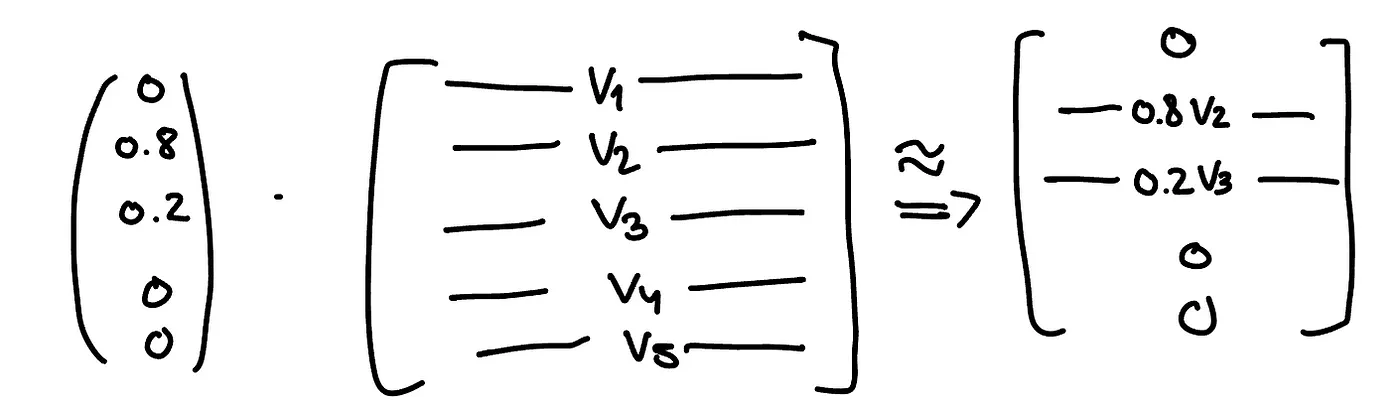 0
0.8
0.2
0
0
·
V1
V2
V3
V4
V5
≈
⇒
0
0.8V2
0.2V3
0
0